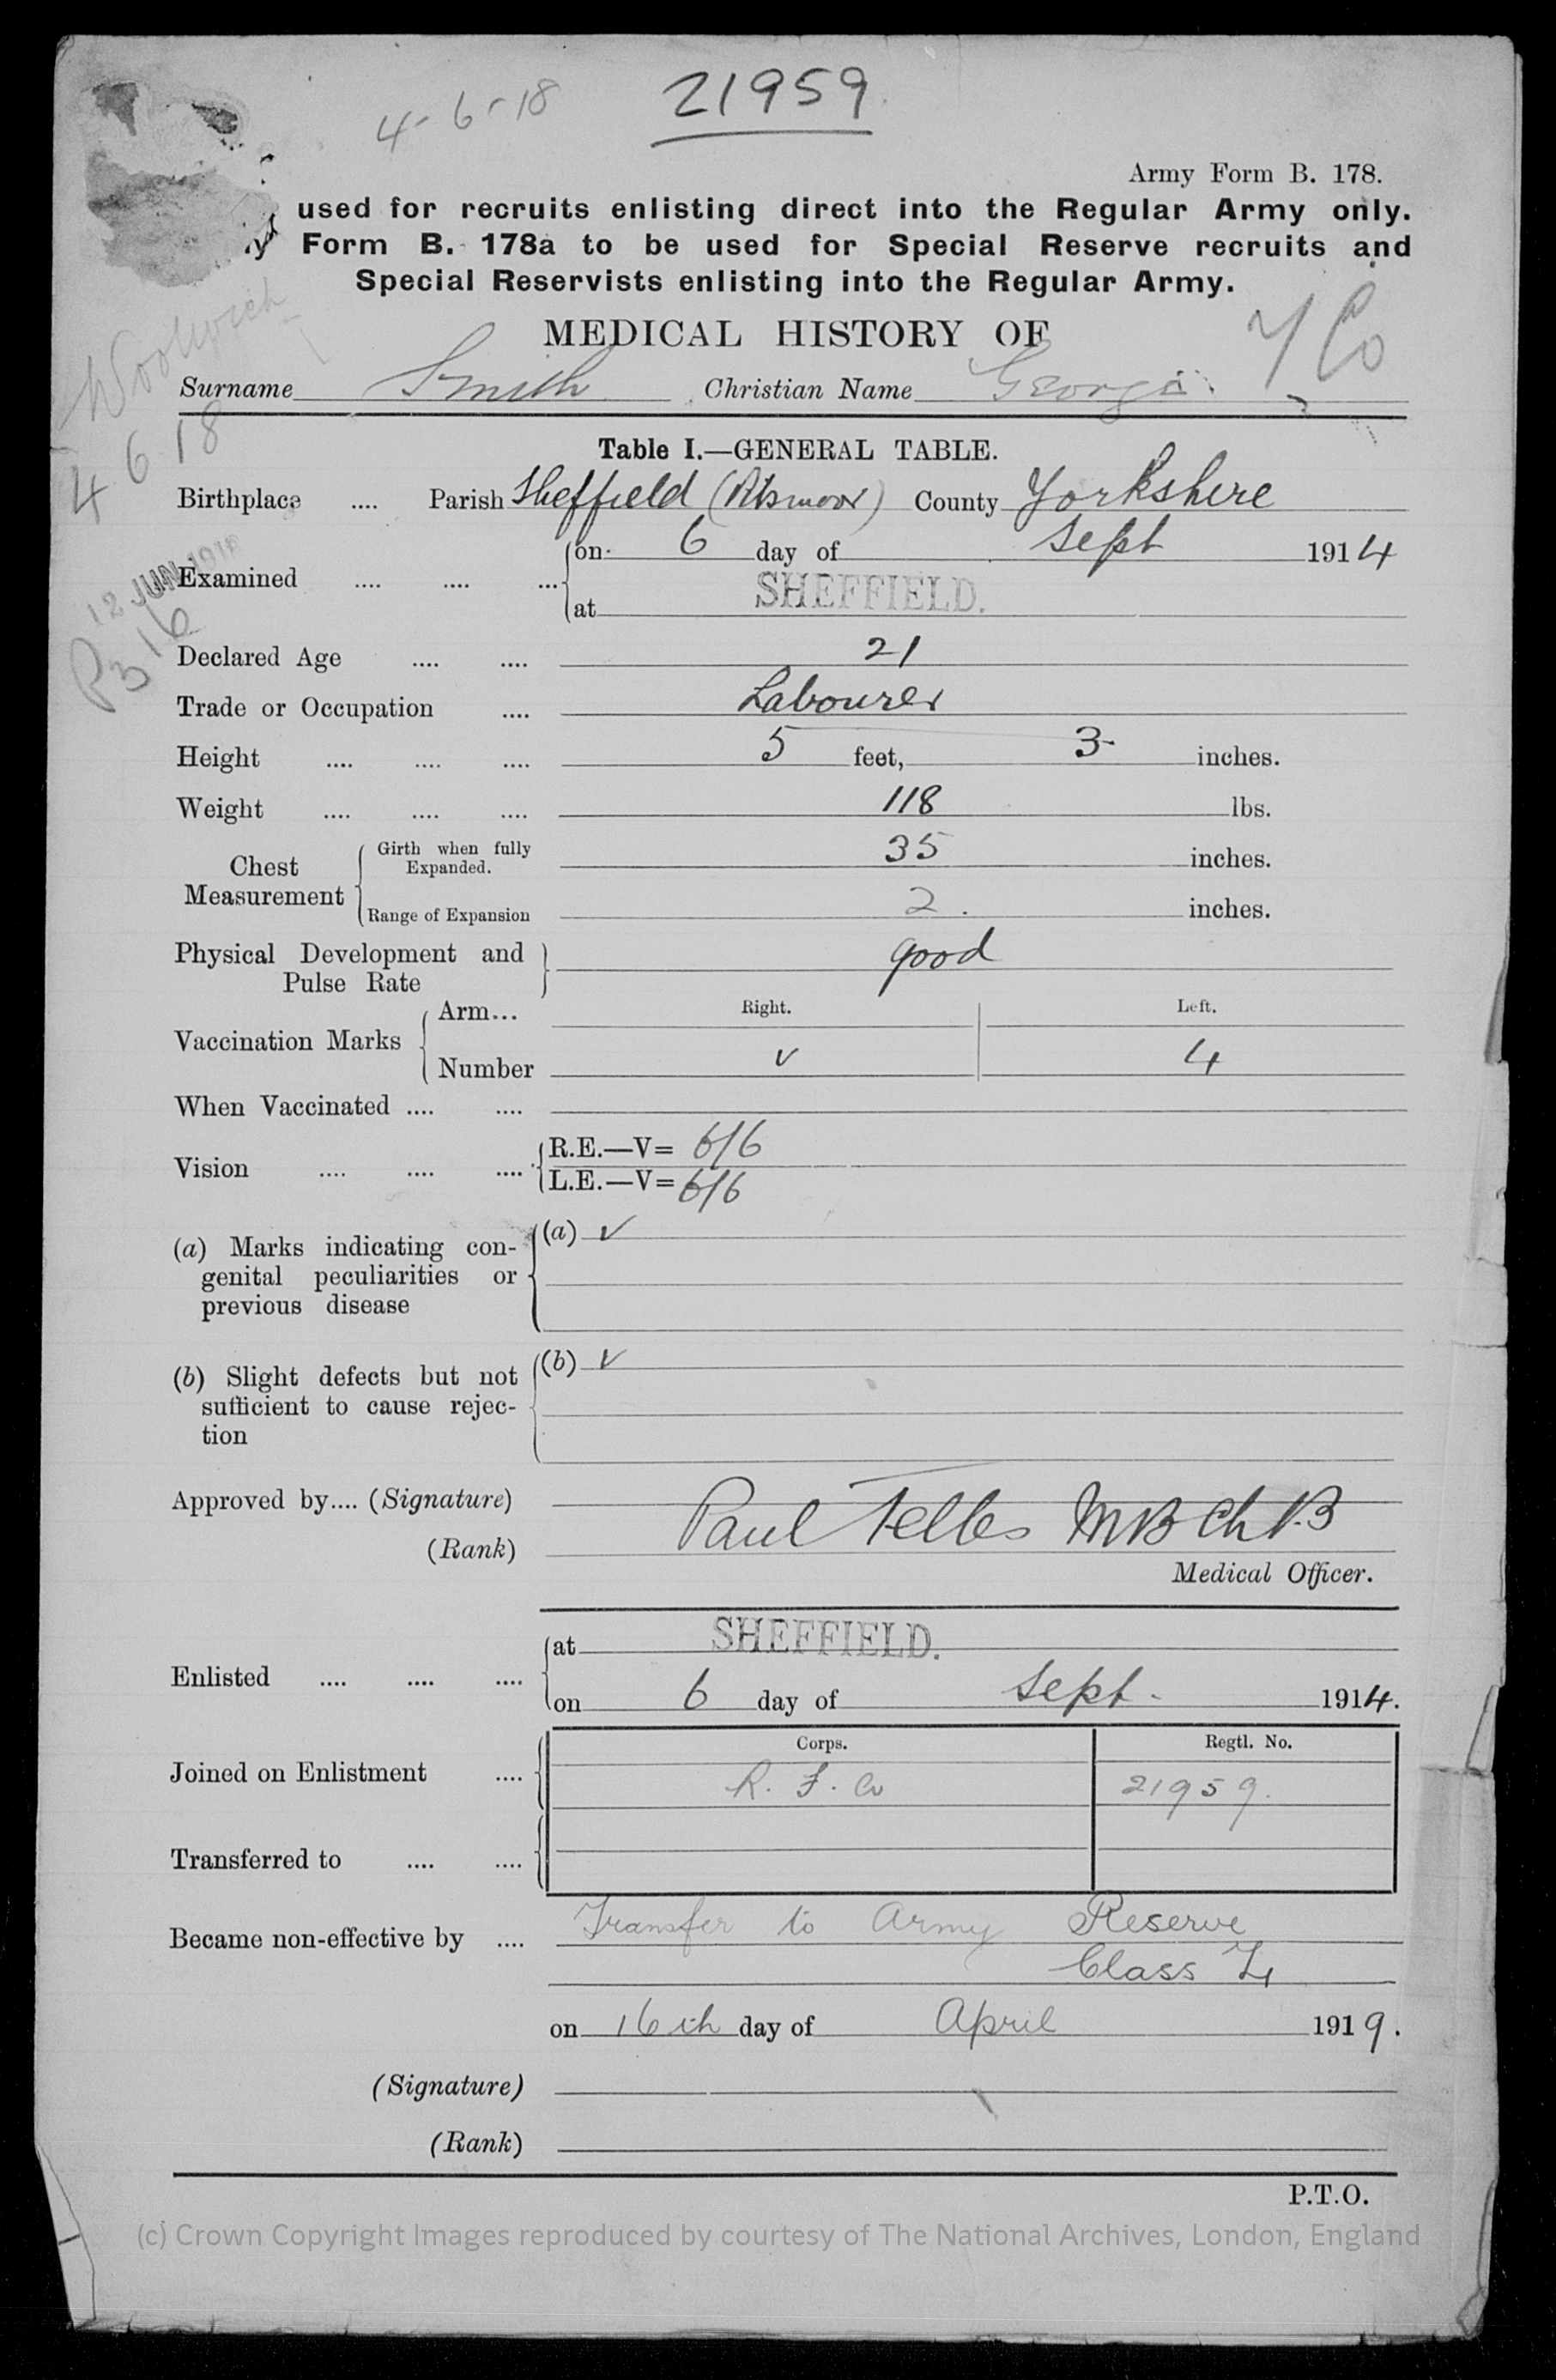 4-6-18 21959
Army Form B. 178.
used for recruits enlisting direct into the Regular Army only.
Form B. 178a to be used for Special Reserve recruits and
Special Reservists enlisting into the Regular Army.
Woolwich
MEDICAL HISTORY OF
Surname Smith Christian Name George
4 6 18
Table I.—GENERAL TABLE.
Birthplace .... Parish Sheffield County Yorkshire
Examined .... .... ... on 6 day of Sept 1914
at SHEFFIELD.
12 JUN 1918
P316
Declared Age .... .... 21
Trade or Occupation .... Labourer
Height .... .... .... 5 feet, 3 inches.
Weight .... .... .... 118 lbs.
Chest Measurement Girth when fully Expanded. 35 inches.
Range of Expansion 2. inches.
Physical Development and Pulse Rate good
Vaccination Marks Arm... Right. Left.
Number v 4
When Vaccinated .... ....
Vision .... .... .... R.E.—V= 6/6
L.E.—V= 6/6
(a) Marks indicating con- (a) v
genital peculiarities or
previous disease
(b) Slight defects but not (b) v
sufficient to cause rejec-
tion
Approved by.... (Signature) Paul MB Ch.B
(Rank)
Medical Officer.
Enlisted .... .... .... at SHEFFIELD.
on 6 day of Sept. 1914.
Corps. Regtl. No.
Joined on Enlistment .... R. F. 21959.
Transferred to .... ....
Became non-effective by .... Transfer to Army Reserve
Class Z
on 16th day of April 1919.
(Signature)
(Rank)
P.T.O.
(c) Crown Copyright Images reproduced by courtesy of The National Archives, London, England